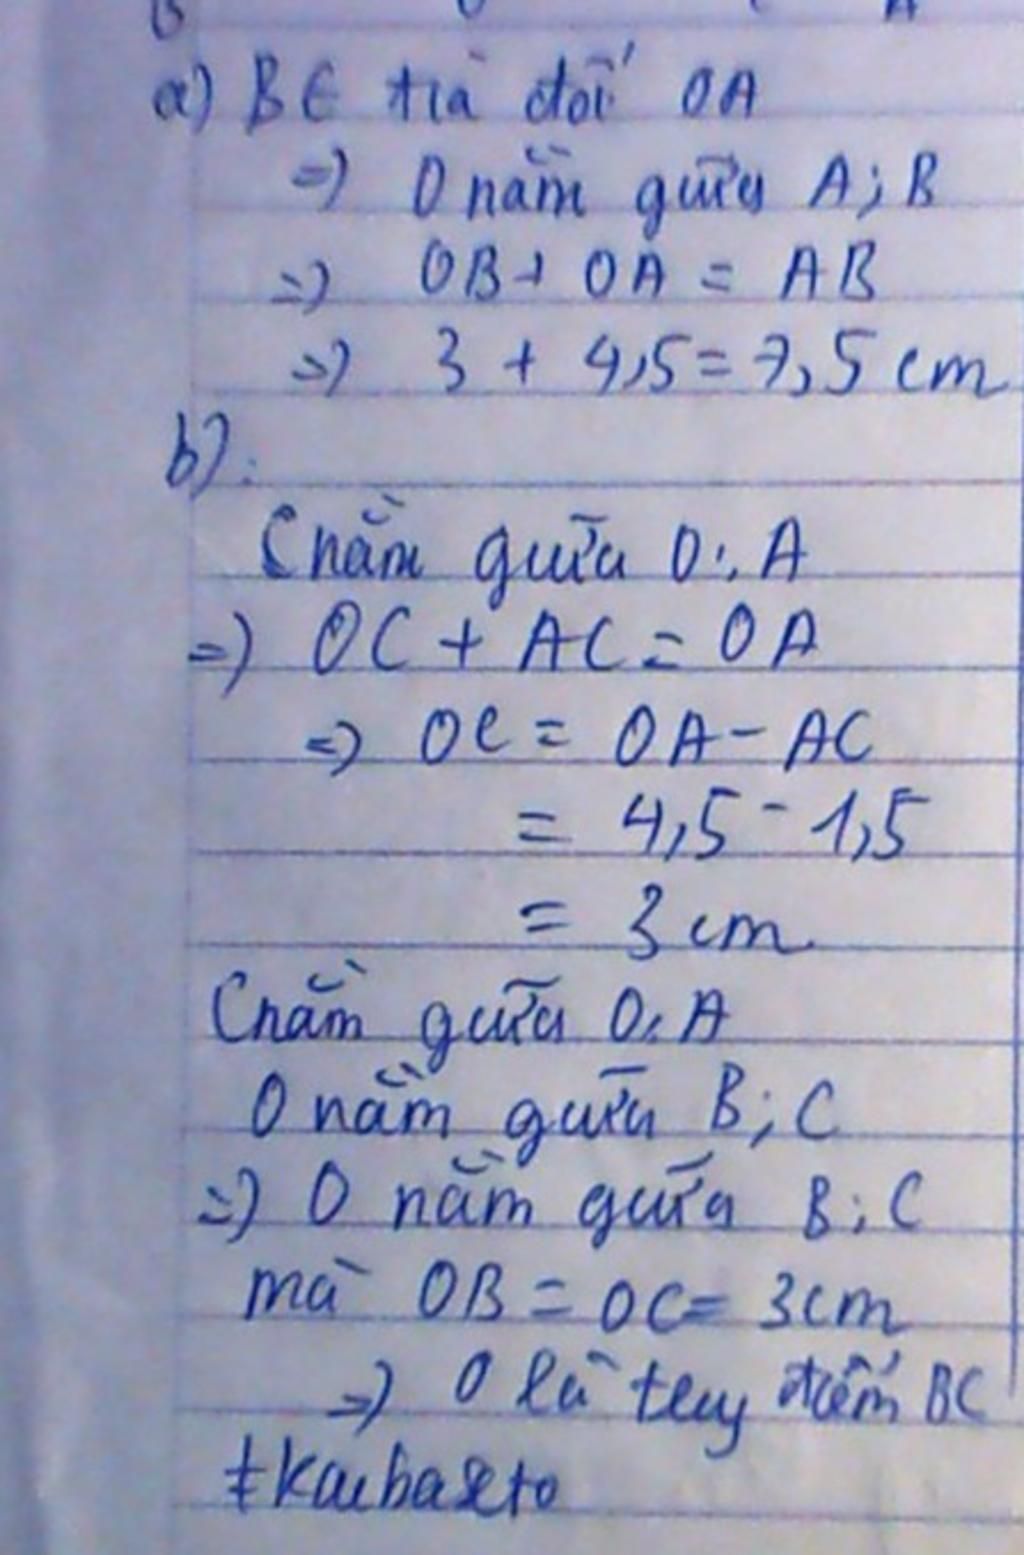 B O C A
a) B ∈ tia đối OA
=) O nằm giữa A; B
=) OB + OA = AB
=) 3 + 4,5 = 7,5 cm
b):
C nằm giữa O; A
=) OC + AC = OA
=) OC = OA - AC
= 4,5 - 1,5
= 3 cm
C nằm giữa O; A
O nằm giữa B; C
=) O nằm giữa B; C
mà OB = OC = 3cm
=) O là điểm BC